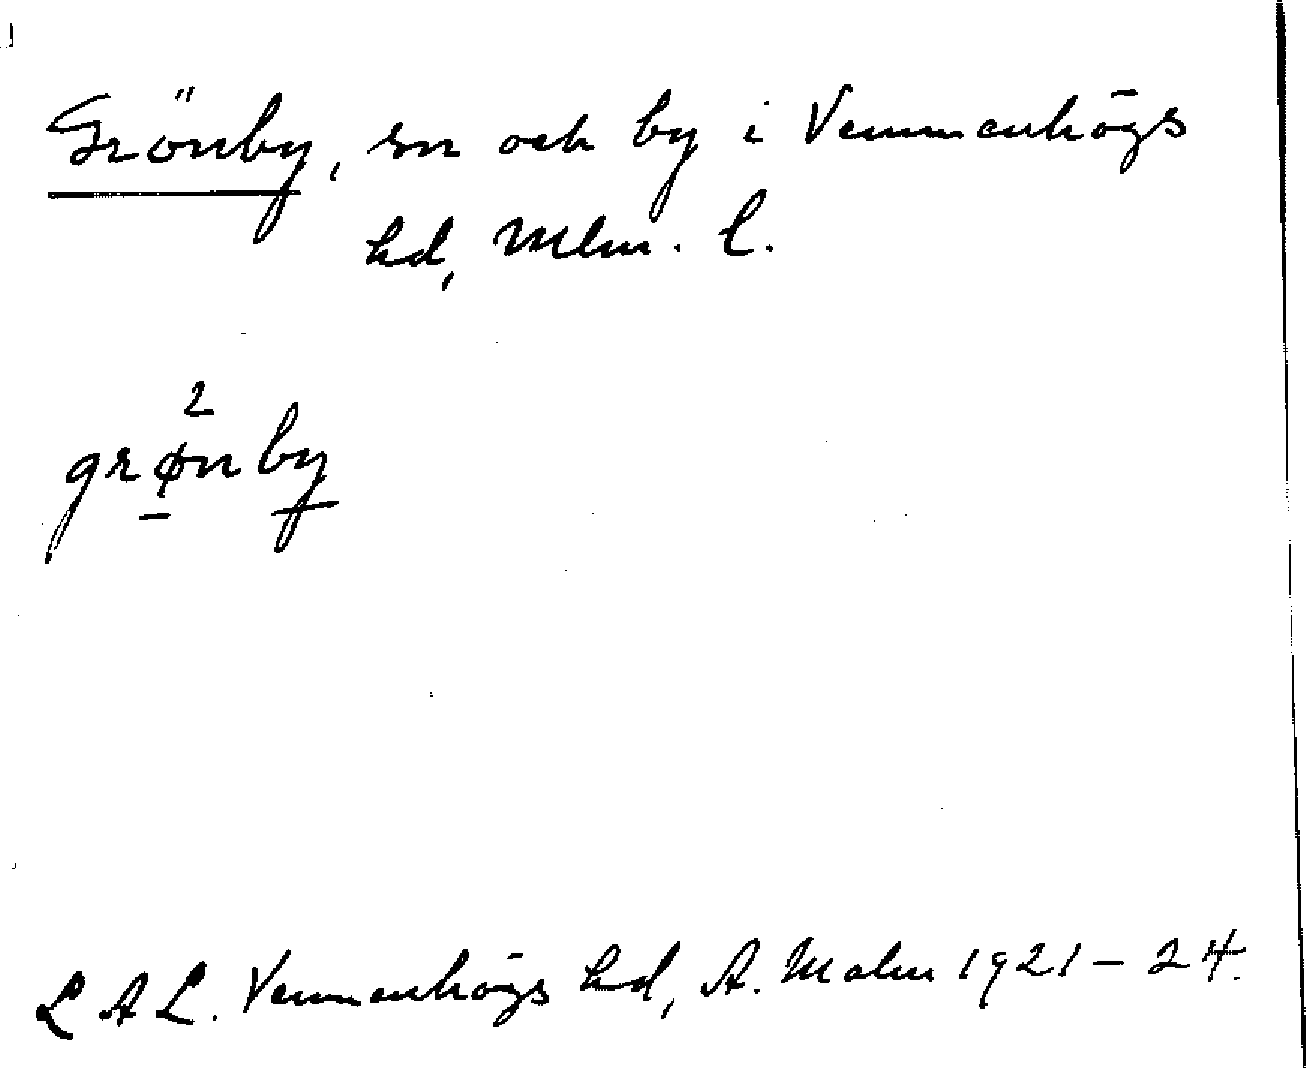 Grönby, sn och by i Vemmenhögs
hd, Mlm. l.
2
grønby
LAL. Vemmenhögs hd, A. Malm 1921–24.